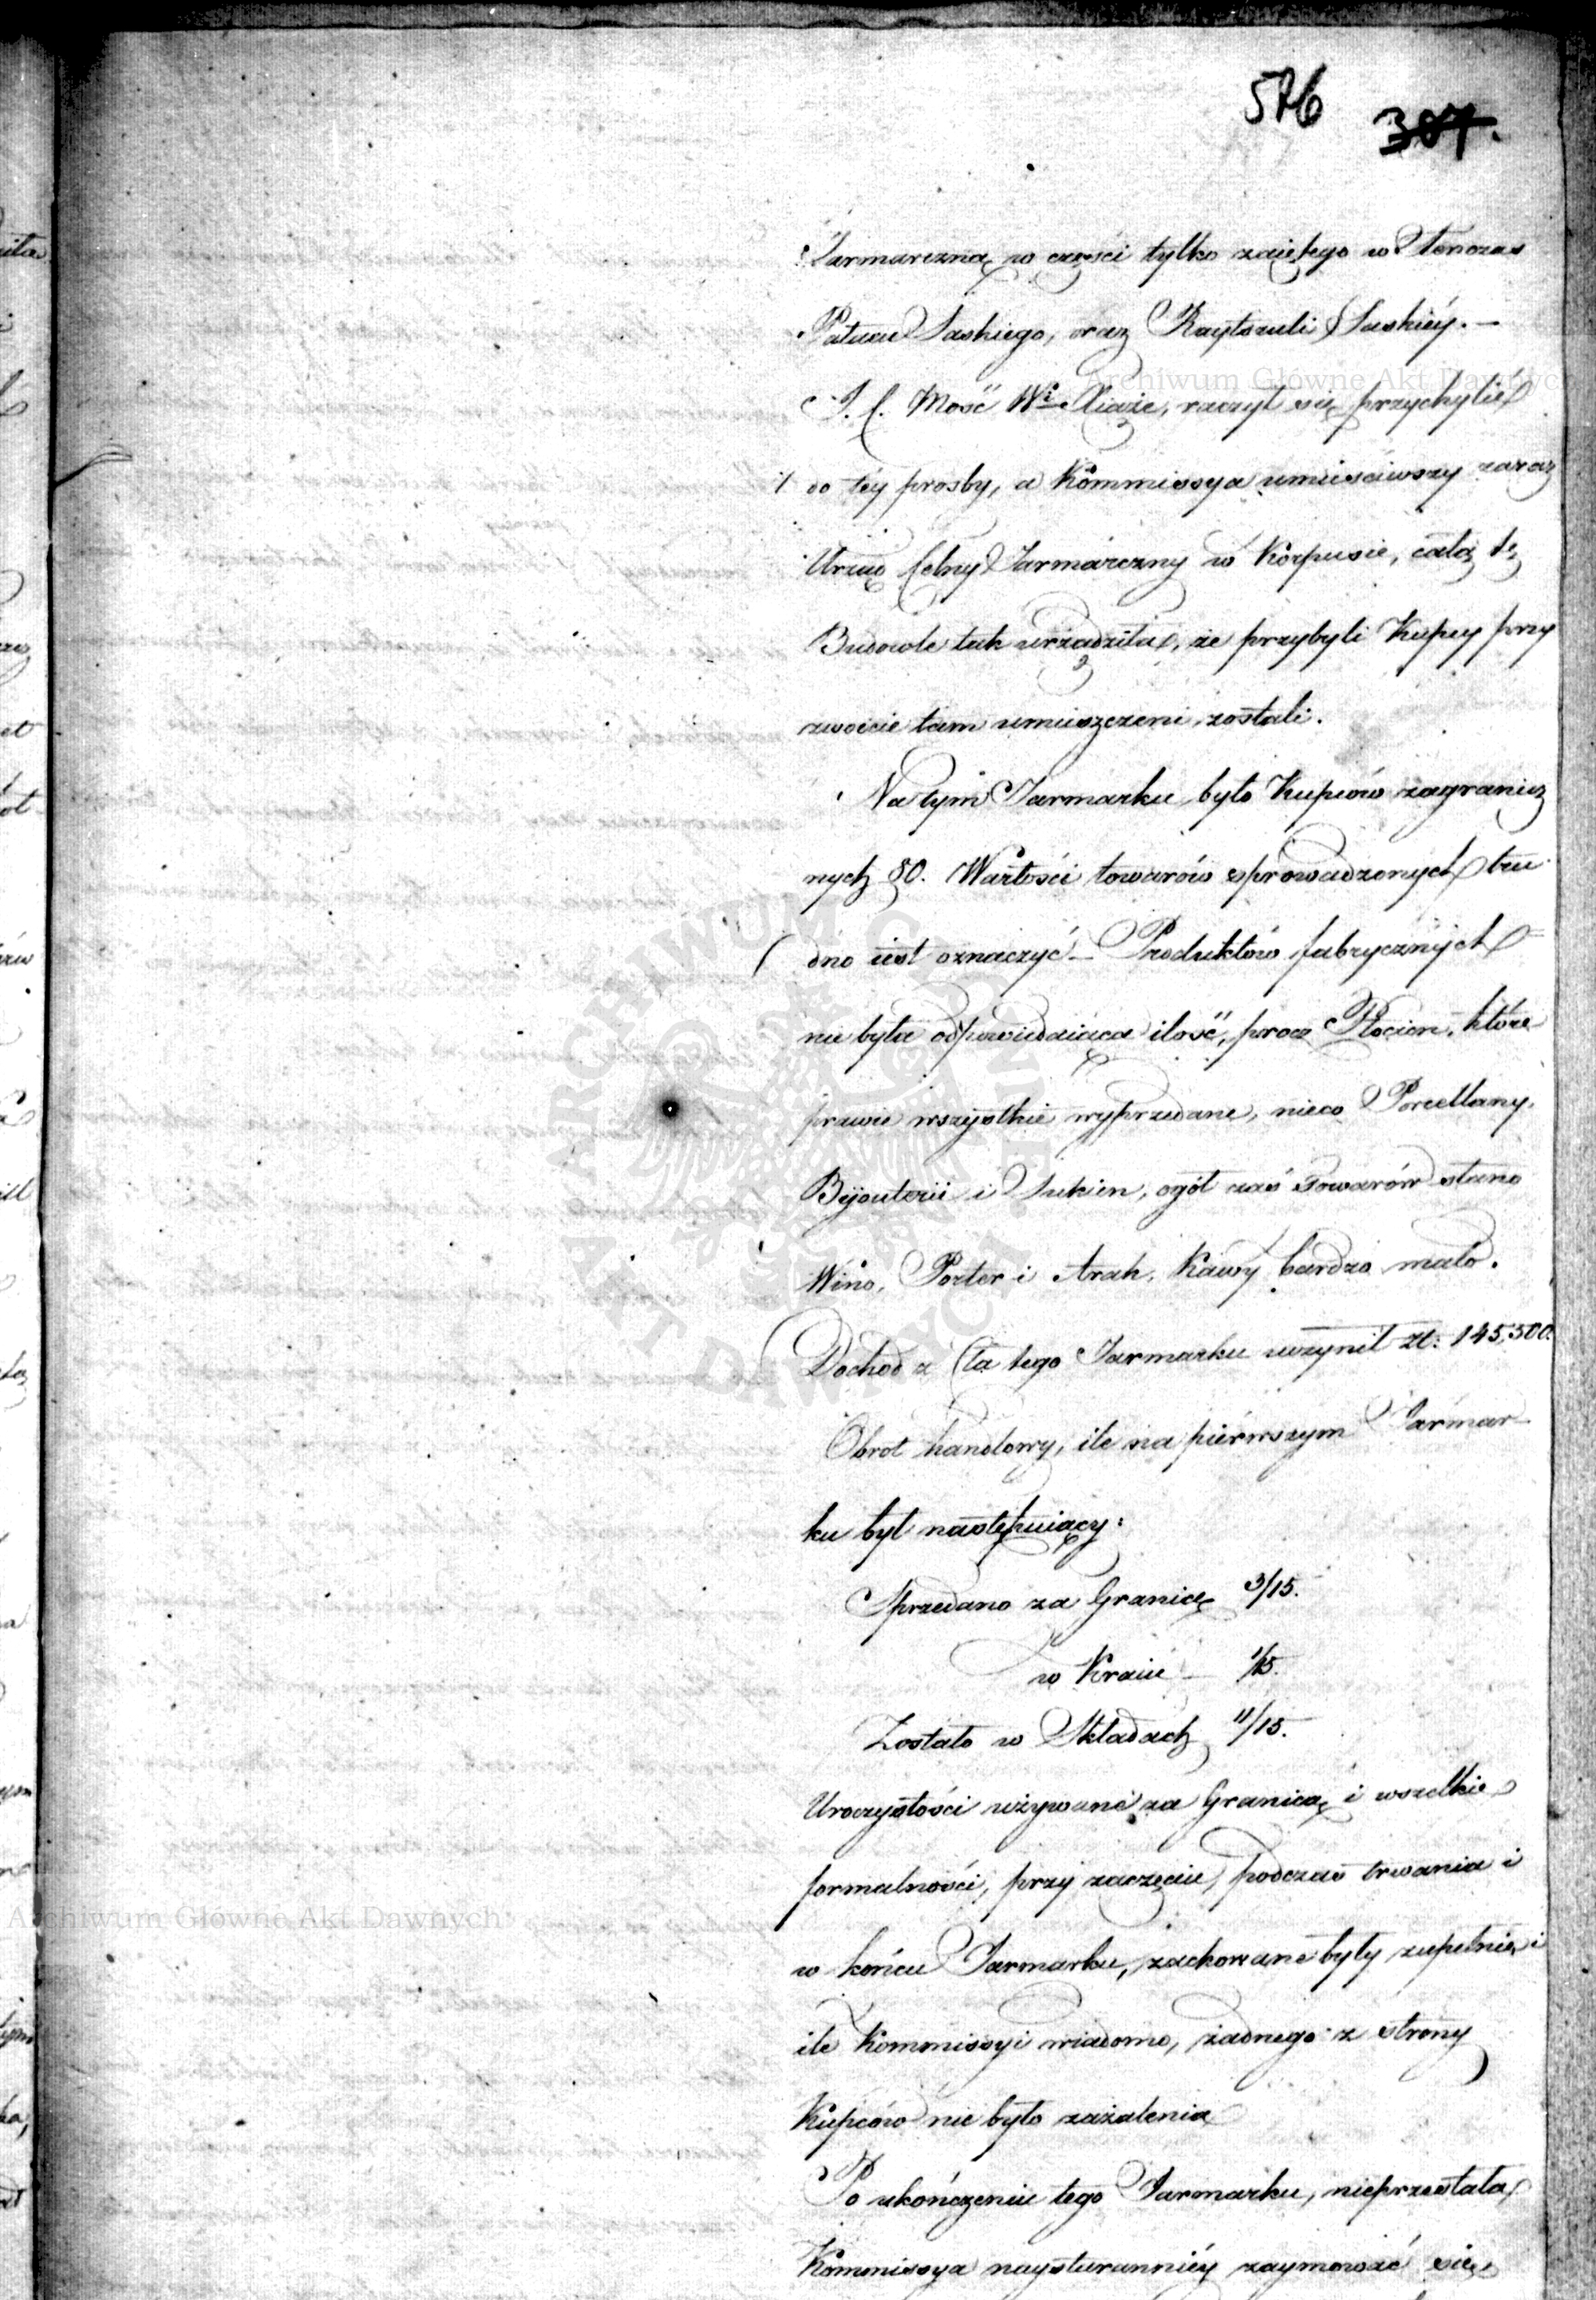 576 307.
Jarmarczną w części tylko zaiętego w tenczas
Pałacu Saskiego, oraz Raytszuli Saskiéy. —
J. C. Mość Wi Xiąże, raczył się przychylić
do téy prosby, a Kommissya umieściwszy zaraz
Urząd Celny Jarmarczny w Korpusie, całą tę
Budowle tak urządziła, że przybyli Kupcy przy
zwoicie tam umieszczeni zostali.
Na tym Jarmarku było Kupców zagranicz
nych 80. Wartości towarów sprowadzonych tru
dno iest oznaczyć — Produktów fabrycznych
nie była odpowiedaiąca ilość, procz Płocien, które
prawie wszystkie wyprzedane, nieco Porcellany,
Bijouterii i Sukien, ogół zaś Towarów stano
Wino, Porter i Arak, Kawy bardzo mało.
Dochod z Cła tego Jarmarku uczynił Zł: 145,500.
Obrot handlowy, ile na piérwszym Jarmar-
ku był nastepuiący:
Sprzedano za Granicę 3/15.
w Kraiu — 1/15.
Zostało w Składach 11/15.
Uroczystości używane za Granicą i wszelkie
formalności, przy zaczęciu, podczas trwania i
w końcu Jarmarku, zachowane były zupełnie i
ile Kommissyi wiadomo, żadnego z strony
Kupców nie było zażalenia
Po ukończeniu tego Jarmarku, nieprzestała
Kommissya naysturanniéy zaymować się
Archiwum Główne Akt Dawnych
Archiwum Główne Akt Dawnych
ARCHIWUM GŁÓWNE AKT DAWNYCH